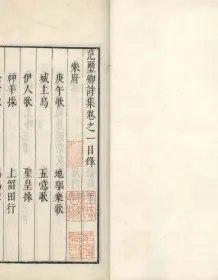 范璽卿詩集卷之一目錄
樂府
庚午歌 地驅樂歌
城上烏 五噫歌
伊人歌 聖皇操
神羊操 上留田行